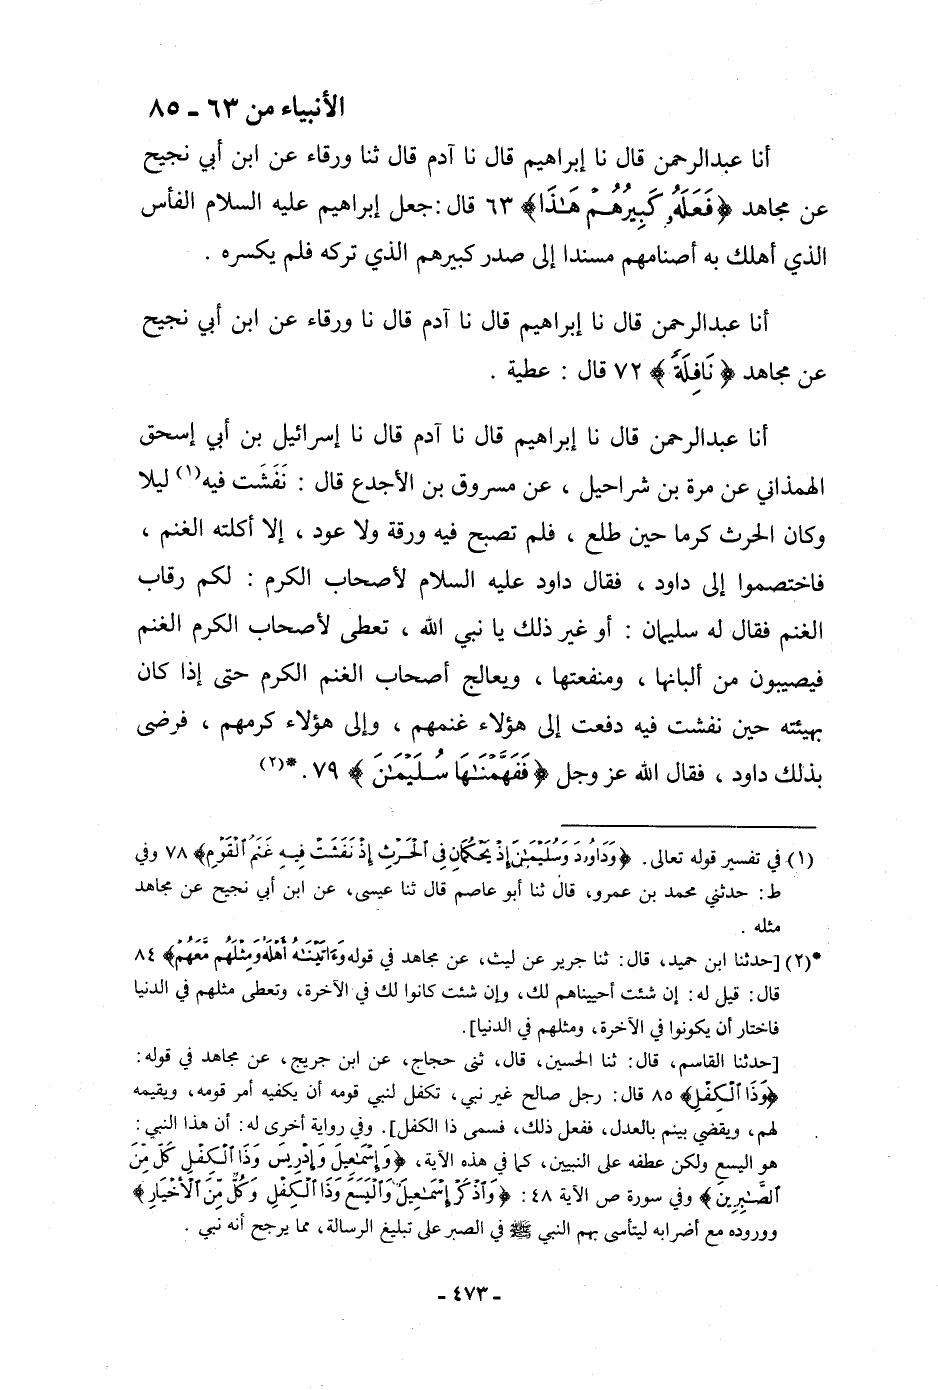 الأنبياء من ٦٣ - ٨٥
أنا عبدالرحمن قال نا إبراهيم قال نا آدم قال ثنا ورقاء عن ابن أبي نجيح
عن مجاهد ﴿فَعَلَهُۥ كَبِيرُهُمْ هَٰذَا﴾ ٦٣ قال: جعل إبراهيم عليه السلام الفأس
الذي أهلك به أصنامهم مسندا إلى صدر كبيرهم الذي تركه فلم يكسره .
أنا عبدالرحمن قال نا إبراهيم قال نا آدم قال نا ورقاء عن ابن أبي نجيح
عن مجاهد ﴿ نَافِلَةً ﴾ ٧٢ قال : عطية .
أنا عبدالرحمن قال نا إبراهيم قال نا آدم قال نا إسرائيل بن أبي إسحق
الهمذاني عن مرة بن شراحيل ، عن مسروق بن الأجدع قال : نَفَشَت فيه(١) ليلا
وكان الحرث كرما حين طلع ، فلم تصبح فيه ورقة ولا عود ، إلا أكلته الغنم ،
فاختصموا إلى داود ، فقال داود عليه السلام لأصحاب الكرم : لكم رقاب
الغنم فقال له سليمان : أو غير ذلك يا نبي الله ، تعطى لأصحاب الكرم الغنم
فيصيبون من ألبانها ، ومنفعتها ، ويعالج أصحاب الغنم الكرم حتى إذا كان
بهيئته حين نفشت فيه دفعت إلى هؤلاء غنمهم ، وإلى هؤلاء كرمهم ، فرضى
بذلك داود ، فقال الله عز وجل ﴿ فَفَهَّمْنَٰهَا سُلَيْمَٰنَ ﴾ ٧٩. *(٢)
(١) في تفسير قوله تعالى. ﴿وَدَاوُۥدَ وَسُلَيْمَٰنَ إِذْ يَحْكُمَانِ فِى ٱلْحَرْثِ إِذْ نَفَشَتْ فِيهِ غَنَمُ ٱلْقَوْمِ﴾ ٧٨ وفي
ط: حدثني محمد بن عمرو، قال ثنا أبو عاصم قال ثنا عيسى، عن ابن أبي نجيح عن مجاهد
مثله .
*(٢) [حدثنا ابن حميد، قال: ثنا جرير عن ليث، عن مجاهد في قوله وَءَاتَيْنَٰهُ أَهْلَهُۥ وَمِثْلَهُم مَّعَهُمْ﴾ ٨٤
قال: قيل له: إن شئت أحييناهم لك، وإن شئت كانوا لك في الآخرة، وتعطى مثلهم في الدنيا
فاختار أن يكونوا في الآخرة، ومثلهم في الدنيا].
[حدثنا القاسم، قال: ثنا الحسين، قال، ثنى حجاج، عن ابن جريج، عن مجاهد في قوله:
﴿وَذَا ٱلْكِفْلِ﴾ ٨٥ قال: رجل صالح غير نبي، تكفل لنبي قومه أن يكفيه أمر قومه، ويقيمه
لهم، ويقضي بينم بالعدل، ففعل ذلك، فسمى ذا الكفل]. وفي رواية أخرى له: أن هذا النبي:
هو اليسع ولكن عطفه على النبيين، كما في هذه الآية، ﴿وَإِسْمَٰعِيلَ وَإِدْرِيسَ وَذَا ٱلْكِفْلِ كُلٌّ مِّنَ
ٱلصَّٰبِرِينَ﴾ وفي سورة ص الآية ٤٨: ﴿وَٱذْكُرْ إِسْمَٰعِيلَ وَٱلْيَسَعَ وَذَا ٱلْكِفْلِ وَكُلٌّ مِّنَ ٱلْأَخْيَارِ﴾
ووروده مع أضرابه ليتأسى بهم النبي ﷺ في الصبر على تبليغ الرسالة، مما يرجح أنه نبي .
- ٤٧٣ -